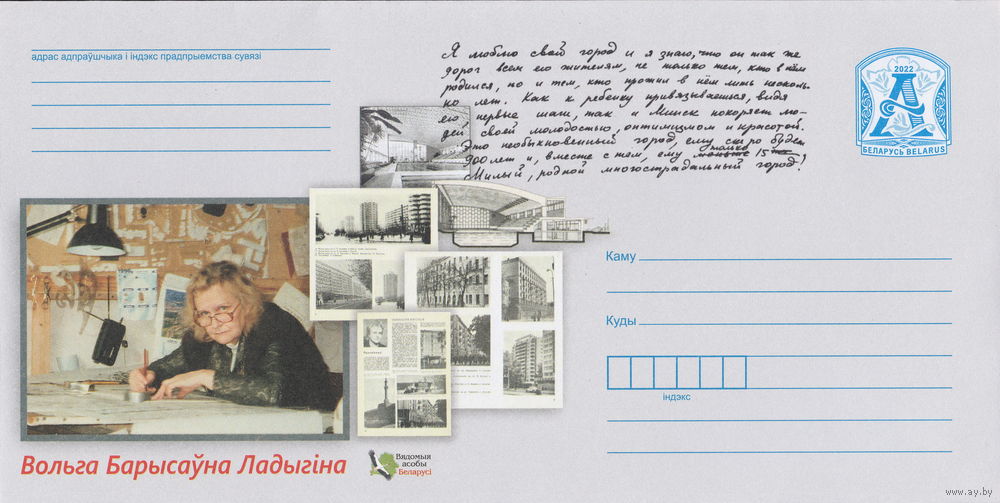 адрас адпраўшчыка і індэкс прадпрыемства сувязі
Я люблю свой город и я знаю, что он так же
дорог всем его жителям, не только тем, кто в нём
родился, но и тем, кто прожил в нём лишь несколь-
ко лет. Как к ребенку привязываешься, видя
его первые шаги, так и Минск покоряет лю-
дей своей молодостью, оптимизмом и красотой.
Это необыкновенный город, ему скоро будет
900 лет и, вместе с тем, ему только 15!
Милый, родной многострадальный город.
2022
А
БЕЛАРУСЬ BELARUS
Каму
Куды
індэкс
Вольга Барысаўна Ладыгіна
Вядомыя
асобы
Беларусі
www.ay.by